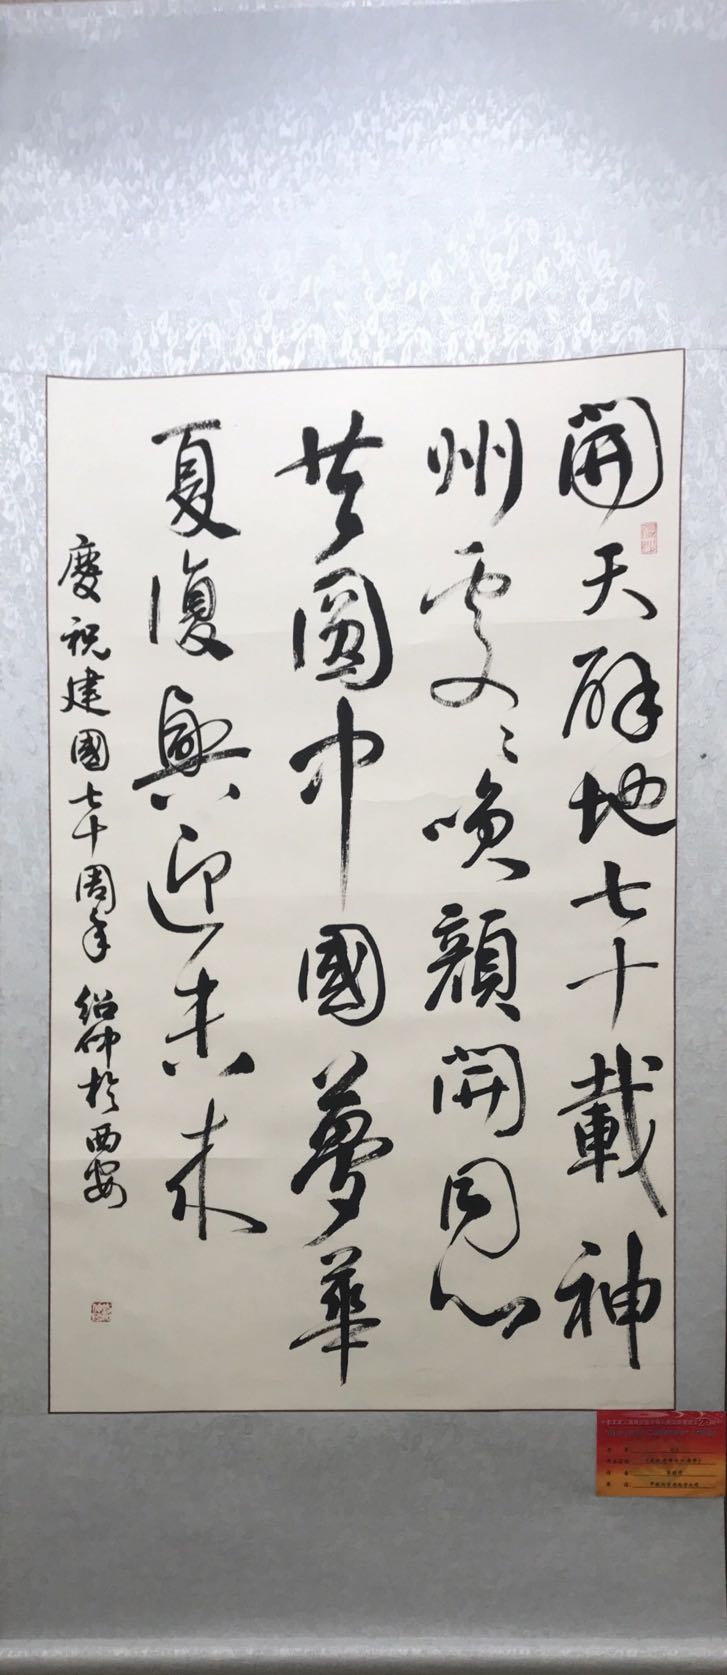 開天辟地七十載神
州處〻喚顏開同心
共圓中國夢華
夏復興迎未來
慶祝建國七十周年 紹仲於西安